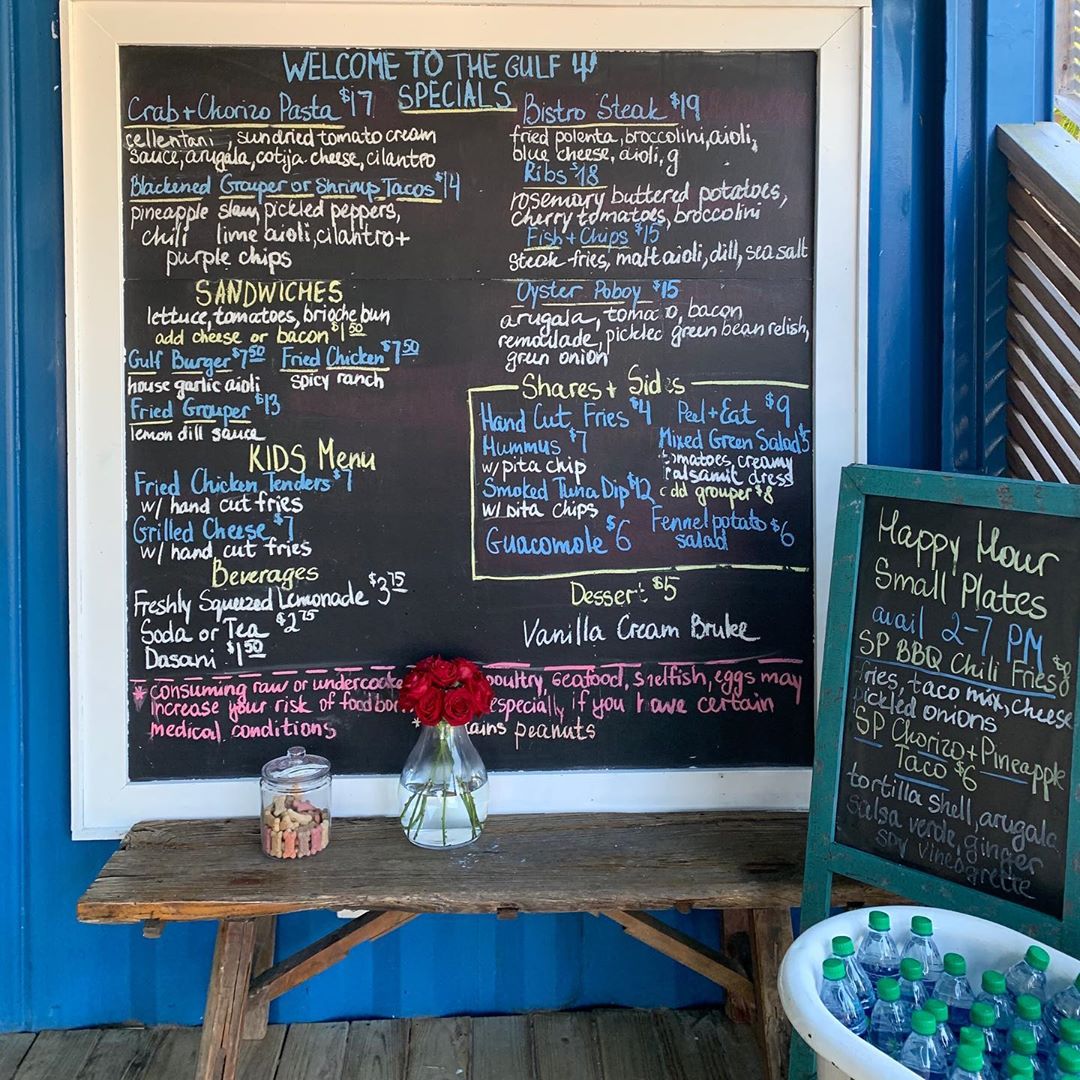 WELCOME TO THE GULF
SPECIALS
Crab + Chorizo Pasta $17
cellentani, sundried tomato cream
sauce, arugala, cotija cheese, cilantro
Blackened Grouper or Shrimp Tacos $14
pineapple slaw, pickled peppers,
chili lime aioli, cilantro +
purple chips
SANDWICHES
lettuce, tomatoes, brioche bun
add cheese or bacon $1 50
Gulf Burger $7 50 Fried Chicken $7 50
house garlic aioli spicy ranch
Fried Grouper $13
lemon dill sauce
KIDS Menu
Fried Chicken Tenders $7
w/ hand cut fries
Grilled Cheese $7
w/ hand cut fries
Beverages
Freshly Squeezed Lemonade $3 75
Soda or Tea $2 75
Dasani $1 50
Bistro Steak $19
fried polenta, broccolini, aioli,
blue cheese, aioli, g
Ribs $18
rosemary buttered potatoes,
cherry tomatoes, broccolini
Fish + Chips $15
steak fries, malt aioli, dill, sea salt
Oyster Poboy $15
arugala, toma o, bacon
remoulade, pickled green bean relish,
green onion
Shares + Sides
Hand Cut Fries $4 Peel + Eat $9
Hummus $7 Mixed Green Salad $5
w/ pita chip tomatoes, creamy
balsamic dress
Smoked Tuna Dip $12 add grouper $8
w/ pita chips
Guacomole $6 Fennel potato $6
salad
Dessert $5
Vanilla Cream Brulee
* consuming raw or undercooke poultry, seafood, shelfish, eggs may
increase your risk of food bo especially if you have certain
medical conditions * ains peanuts
Happy Hour
Small Plates
avail 2-7 PM
SP BBQ Chili Fries $8
fries, taco mix, cheese
pickled onions
SP Chorizo + Pineapple
Taco $6
tortilla shell, arugala
salsa verde, ginger
soy vineagrette